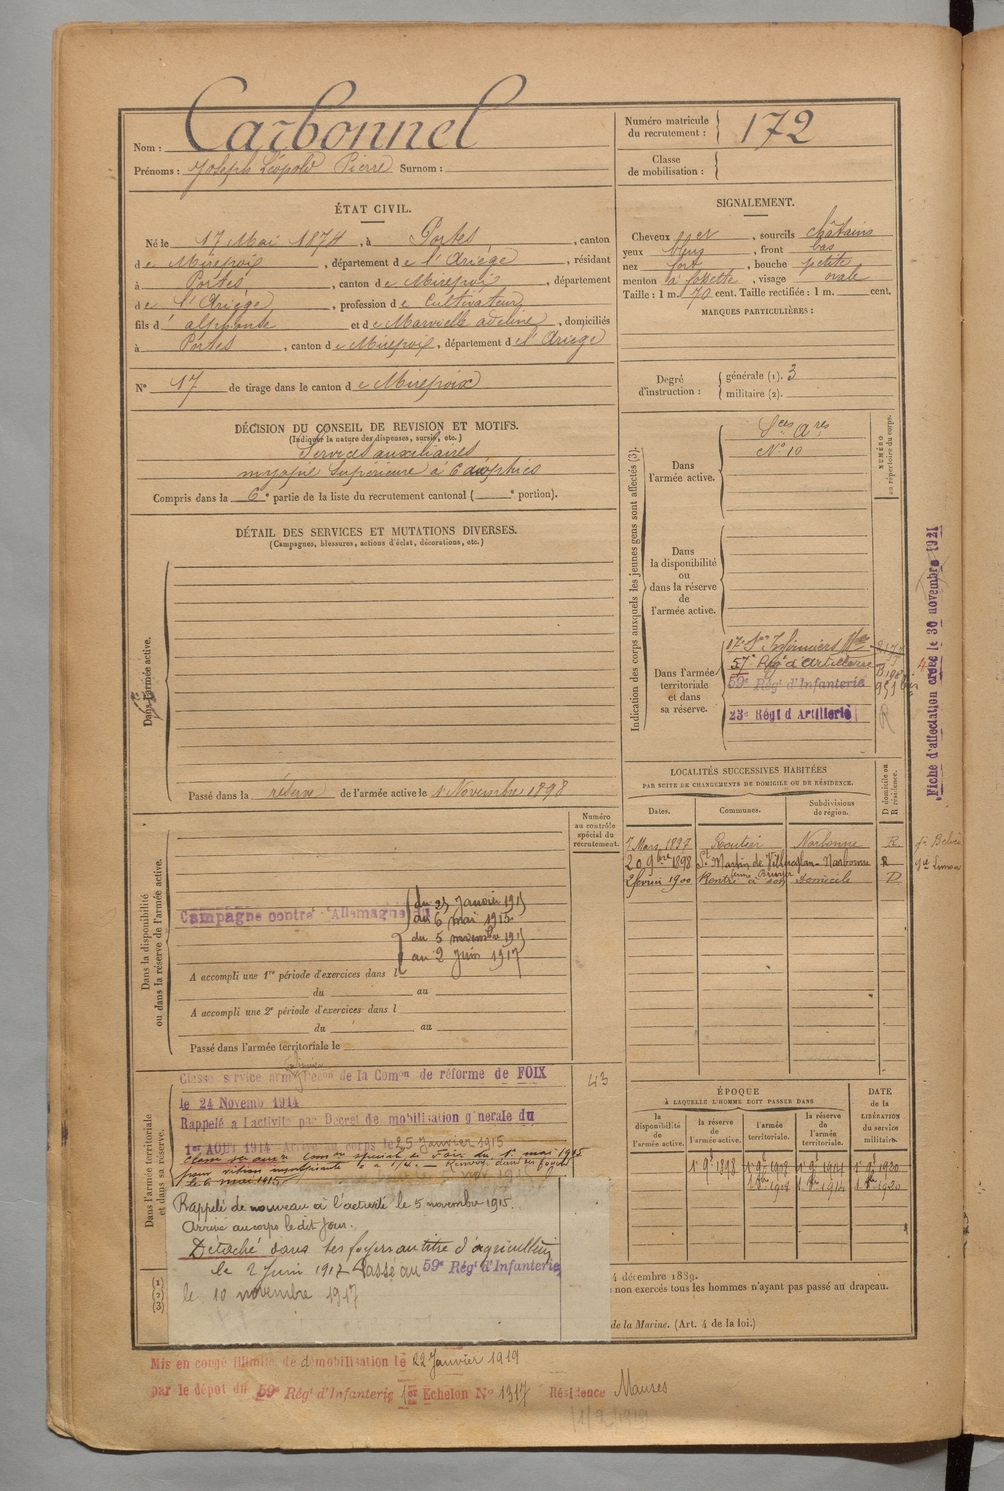 Nom : Carbonnel
Prénoms : Joseph Léopold Pierre Surnom :
Numéro matricule du recrutement : 172
Classe de mobilisation :
ÉTAT CIVIL.
Né le 17 Mai 1874, à Portes, canton
de Mirepoix, département de l'Ariège, résidant
à Portes, canton de Mirepoix, département
de l'Ariège, profession de Cultivateur
fils d' alphonse et de Marvielle adeline, domiciliés
à Portes, canton de Mirepoix, département de l'Ariège
N° 17 de tirage dans le canton de Mirepoix
SIGNALEMENT.
Cheveux et, sourcils châtains
yeux bleus, front bas
nez fort, bouche petite
menton à fossette, visage ovale
Taille : 1 m. 70 cent. Taille rectifiée : 1 m. cent.
MARQUES PARTICULIÈRES :
Degré d'instruction : générale (1). 3
militaire (2).
DÉCISION DU CONSEIL DE REVISION ET MOTIFS.
(Indiquer la nature des dispenses, sursis, etc.)
Services auxiliaires
myopie supérieure à 6 dioptries
Compris dans la 6e partie de la liste du recrutement cantonal ( e portion).
DÉTAIL DES SERVICES ET MUTATIONS DIVERSES.
(Campagnes, blessures, actions d'éclat, décorations, etc.)
Dans l'armée active.
Passé dans la réserve de l'armée active le 1 Novembre 1898
Indication des corps auxquels les jeunes gens sont affectés (3).
NUMÉRO au répertoire du corps.
Dans l'armée active.
Sces Ares
N° 10
Dans la disponibilité ou dans la réserve de l'armée active.
Dans l'armée territoriale et dans sa réserve.
17e Son Infirmiers
57e Régt d'Artillerie
59e Régt d'Infanterie
23e Régt d'Artillerie
R
Fiche d'affectation créée le 30 novembre 1921
LOCALITÉS SUCCESSIVES HABITÉES
PAR SUITE DE CHANGEMENTS DE DOMICILE OU DE RÉSIDENCE.
Dates. Communes. Subdivisions de région. D domicile ou R résidence.
Mars 1897 Routier Narbonne R
20 9bre 1898 St Martin de Villereglan Narbonne R
2 février 1900 Rentré à son domicile D
Numéro au contrôle spécial du recrutement.
Dans la disponibilité ou dans la réserve de l'armée active.
Campagne contre l'Allemagne du
du 25 Janvier 1915
au 6 mai 1915
du 5 novembre 1915
au 2 Juin 1917
A accompli une 1re période d'exercices dans l
du au
A accompli une 2e période d'exercices dans l
du au
Passé dans l'armée territoriale le
Dans l'armée territoriale et dans sa réserve.
Classé service armé Décon de la Comon de réforme de FOIX
le 24 Novemb 1914
43
Rappelé à l'activité par Décret de mobilisation générale du
1er AOUT 1914 Arrivé au corps le 25 Janvier 1915
Classé sce aux. Comon spéciale de Foix du 1er mai 1915
pour vision insuffisante Renvoyé dans ses foyers
le 6 mai 1915
Rappelé de nouveau à l'activité le 5 novembre 1915.
Arrivé au corps le dit jour.
Détaché dans ses foyers au titre d'agriculteur
le 2 Juin 1917 Passé au 59e Régt d'Infanterie
le 10 novembre 1917
ÉPOQUE
À LAQUELLE L'HOMME DOIT PASSER DANS
la disponibilité de l'armée active. la réserve de l'armée active. l'armée territoriale. la réserve de l'armée territoriale. DATE de la LIBÉRATION du service militaire.
1er 9bre 1898 1er 9bre 1908 1er 9bre 1914 1er 9bre 1920
1er 8bre 1908 1er 8bre 1914 1er 8bre 1920
(1)
(2)
(3)
4 décembre 1889.
non exercés tous les hommes n'ayant pas passé au drapeau.
de la Marine. (Art. 4 de la loi.)
Mis en congé illimité de démobilisation le 22 Janvier 1919
par le dépôt du 59e Régt d'Infanterie 1er Echelon N° 1317 Résidence Manses